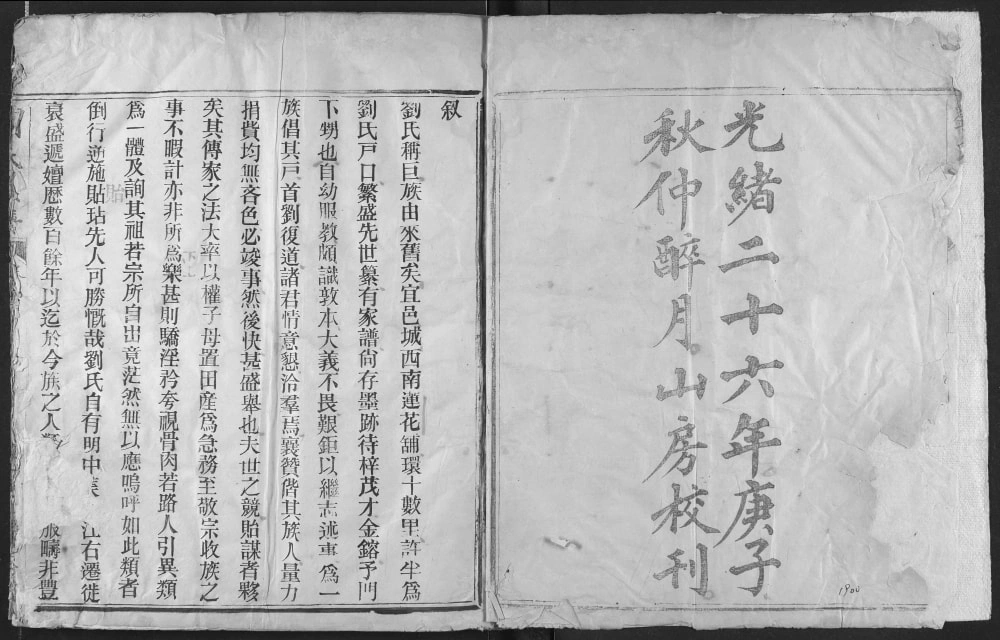 光緒二十六年庚子
秋仲醉月山房校刊
1900
叙
劉氏稱巨族由來舊矣宜邑城西南蓮花舖環十數里許半爲
劉氏戸口繁盛先世纂有家譜尙存墨跡待梓茂才金鎔予門
下甥也自幼服教頗識敦本大義不畏艱鉅以繼志述事爲一
族倡其戸首劉復道諸君情意懇洽羣焉襄贊偕其族人量力
捐貲均無吝色必竣事然後快甚盛舉也夫世之競貽謀者夥
矣其傳家之法大率以權子母置田産爲急務至敬宗收族之
事不暇計亦非所爲樂甚則驕淫矜夸視骨肉若路人引異類
爲一體及詢其祖若宗所自出竟茫然無以應嗚呼如此類者
倒行逆施貼玷先人可勝慨哉劉氏自有明中 江右遷徙
衰盛遞嬗歷數百餘年以迄於今族之人 疇非豐